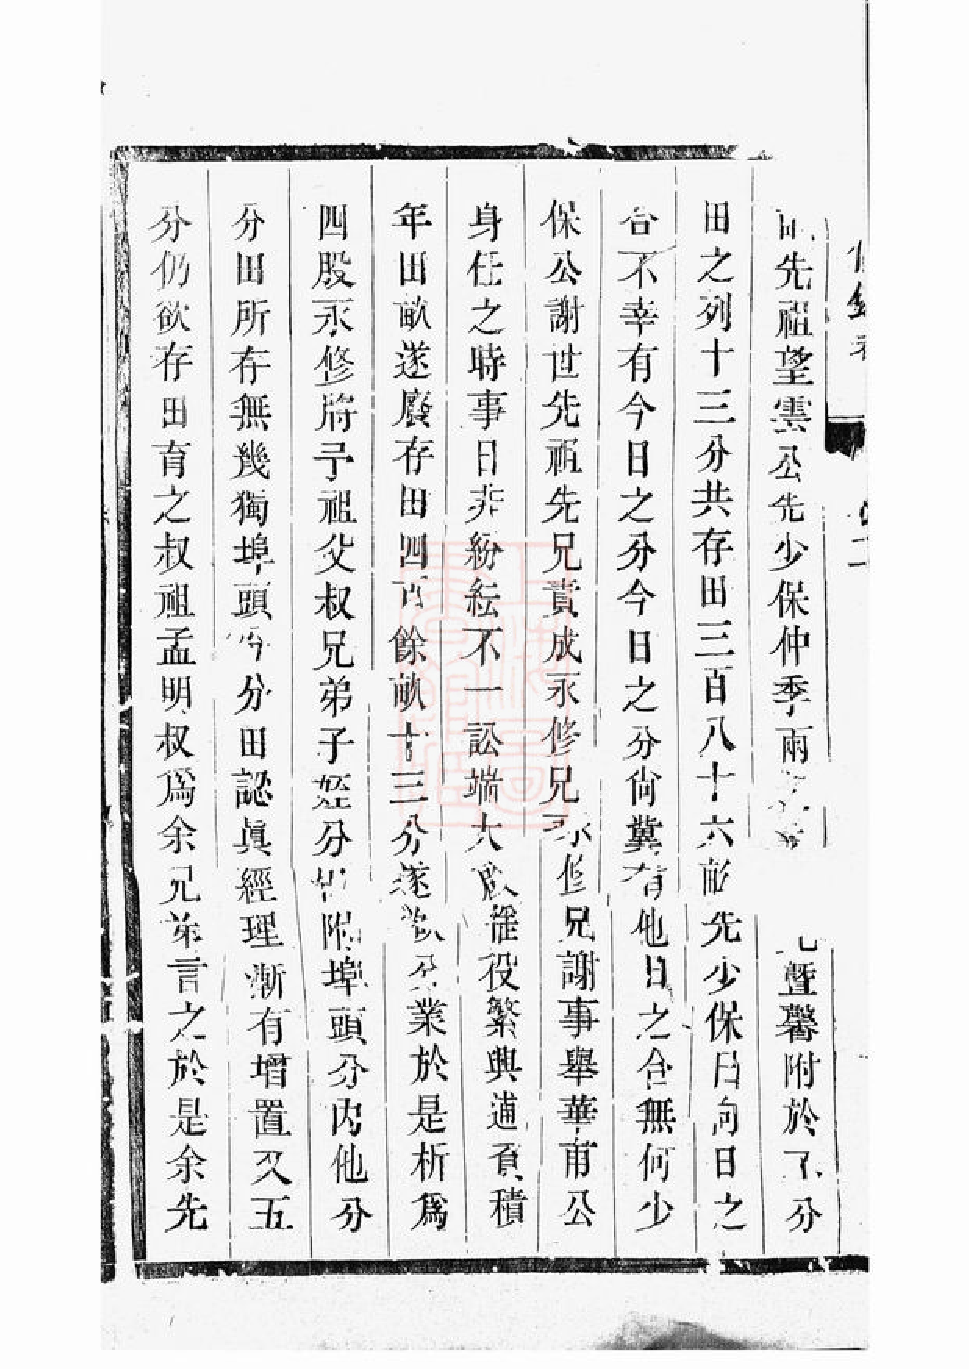 先祖望雲公先少保仲季兩暨馨附於分
田之列十三分共存田三百八十六畝先少保曰向日之
合不幸有今日之分今日之分尙冀有他日之合無何少
保公謝世先祖先兄責成永修兄永修兄謝事舉華甫公
身任之時事日非紛紜不一訟端大啟徭役繁興逋負積
年田畝遂廢存田四百餘畝十三分遂欲分業於是析爲
四股永修將予祖父叔兄弟子姪分附埠頭分內他分
分田所存無幾獨埠頭分田認眞經理漸有增置又五
分仍欲存田育之叔祖孟明叔爲余兄弟言之於是余先